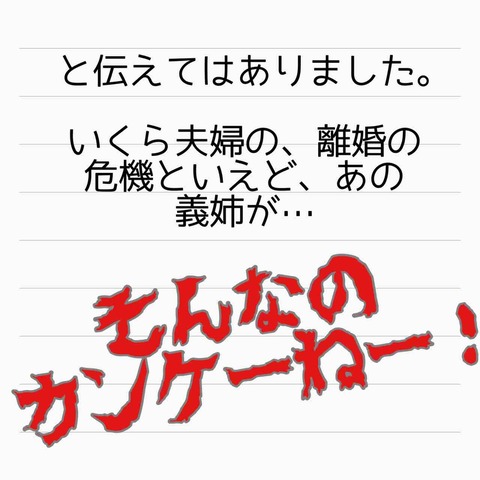 と伝えてはありました。
いくら夫婦の、離婚の
危機といえど、あの
義姉が…
そんなの
カンケーねー！